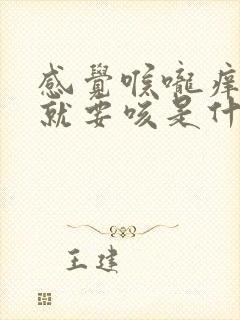 感覺喉嚨痒
就要咳是什
王建